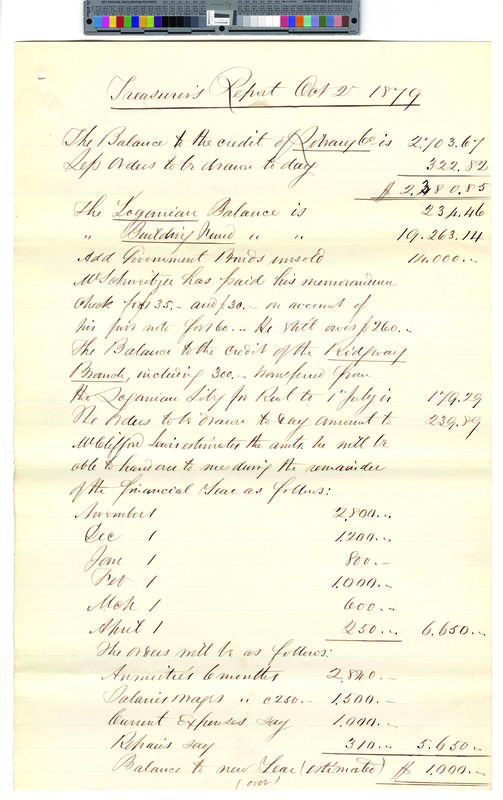 Treasurer's Report Oct 2 1879
The Balance to the credit of Library Co is 2703.67
Less orders to be drawn to day 322.82
$ 2,380.85
The Loganian Balance is 234.46
" Building Fund " " 19.263.14
Add Government Bonds unsold 14.000.--
Mr Schweitzer has paid his memorandum
check for $135.- and $30.- on account of
his note for 160.-- He still owes $260.--
The Balance to the credit of the Ridgway
Branch, including 300.-- transferred from
the Loganian Liby for Rent to 1st July is 179.29
The orders to be drawn to day amount to 239.89
Mr Clifford Lewis estimates the amts. he will be
able to hand over to me during the remainder
of the financial Year as follows:
November 1 2.800.--
Dec 1 1.200.--
Jany 1 800.--
Feb 1 1.000.--
Mch 1 600.--
April 1 250.-- 6.650.--
The orders will be as follows:
Annuities 6 months 2.840.--
Salaries wages " c 250.- 1.500.--
Current Expenses say 1.000.--
Repairs say 310.-- 5.650.--
Balance to new Year (estimated) $ 1.000.--
(over)